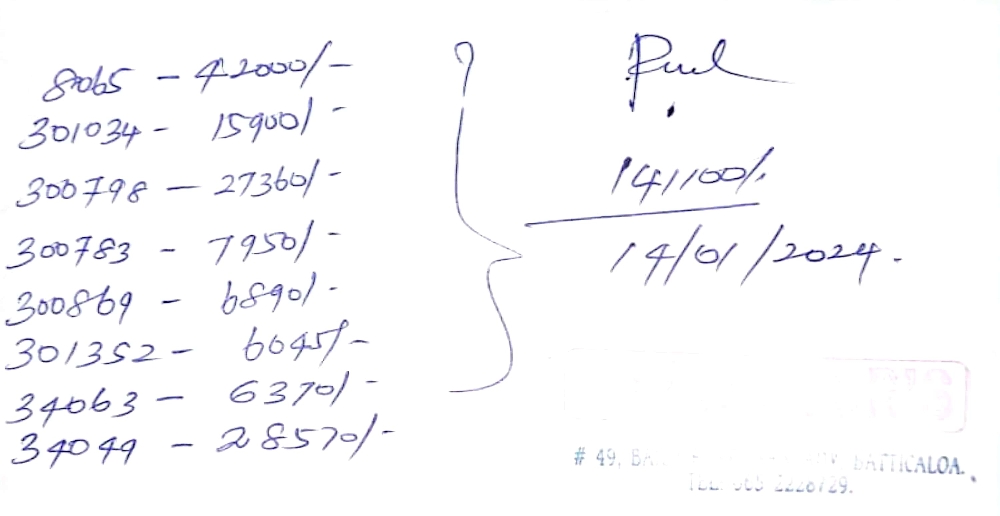 8065 - 42000/-
301034 - 15900/-
300798 - 27360/-
300783 - 7950/-
300869 - 6890/-
301352 - 6045/-
34063 - 6370/-
34049 - 28570/-
141100/.
14/01/2024.
# 49, BATTICALOA.
TEL: 065 2226729.